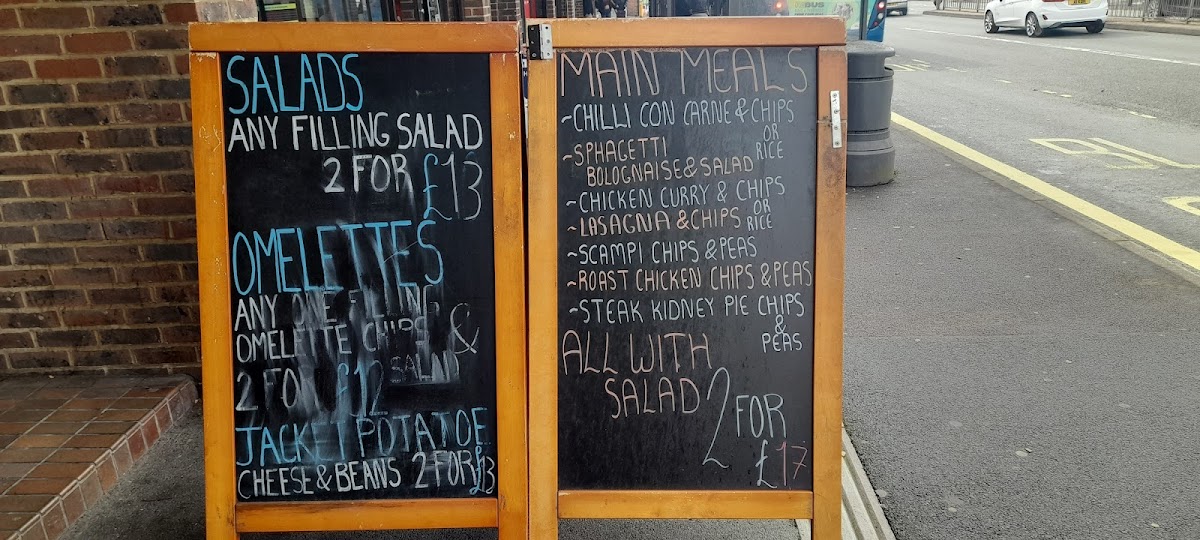 SALADS
ANY FILLING SALAD
2 FOR £13
OMELETTES
ANY ONE FILLING
OMELETTE CHIPS &
SALAD
2 FOR £12
JACKET POTATOE
CHEESE & BEANS 2 FOR £13
MAIN MEALS
~CHILLI CON CARNE & CHIPS
OR
RICE
~SPHAGETTI
BOLOGNAISE & SALAD
~CHICKEN CURRY & CHIPS
OR
RICE
~LASAGNA & CHIPS
~SCAMPI CHIPS & PEAS
~ROAST CHICKEN CHIPS & PEAS
~STEAK KIDNEY PIE CHIPS
&
PEAS
ALL WITH
SALAD 2 FOR
£17